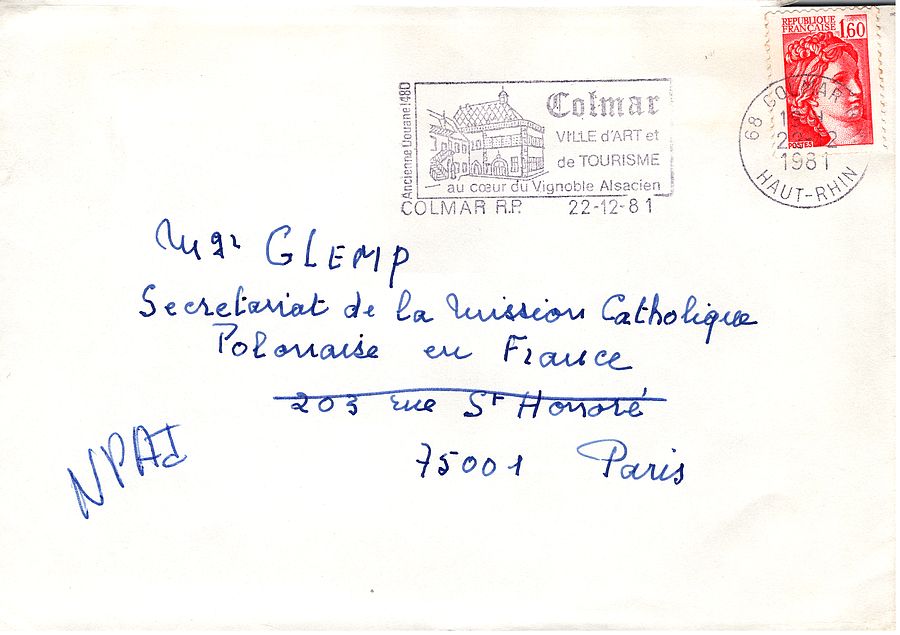 RÉPUBLIQUE
FRANÇAISE 1,60
POSTES
Ancienne Douane 1480
Colmar
VILLE d'ART et
de TOURISME
au cœur du Vignoble Alsacien
COLMAR R.P. 22-12-81
68 COLMAR
1981
HAUT-RHIN
Mgr GLEMP
Secretariat de la Mission Catholique
Polonaise en France
203 rue St Honoré
75001 Paris
NPAI